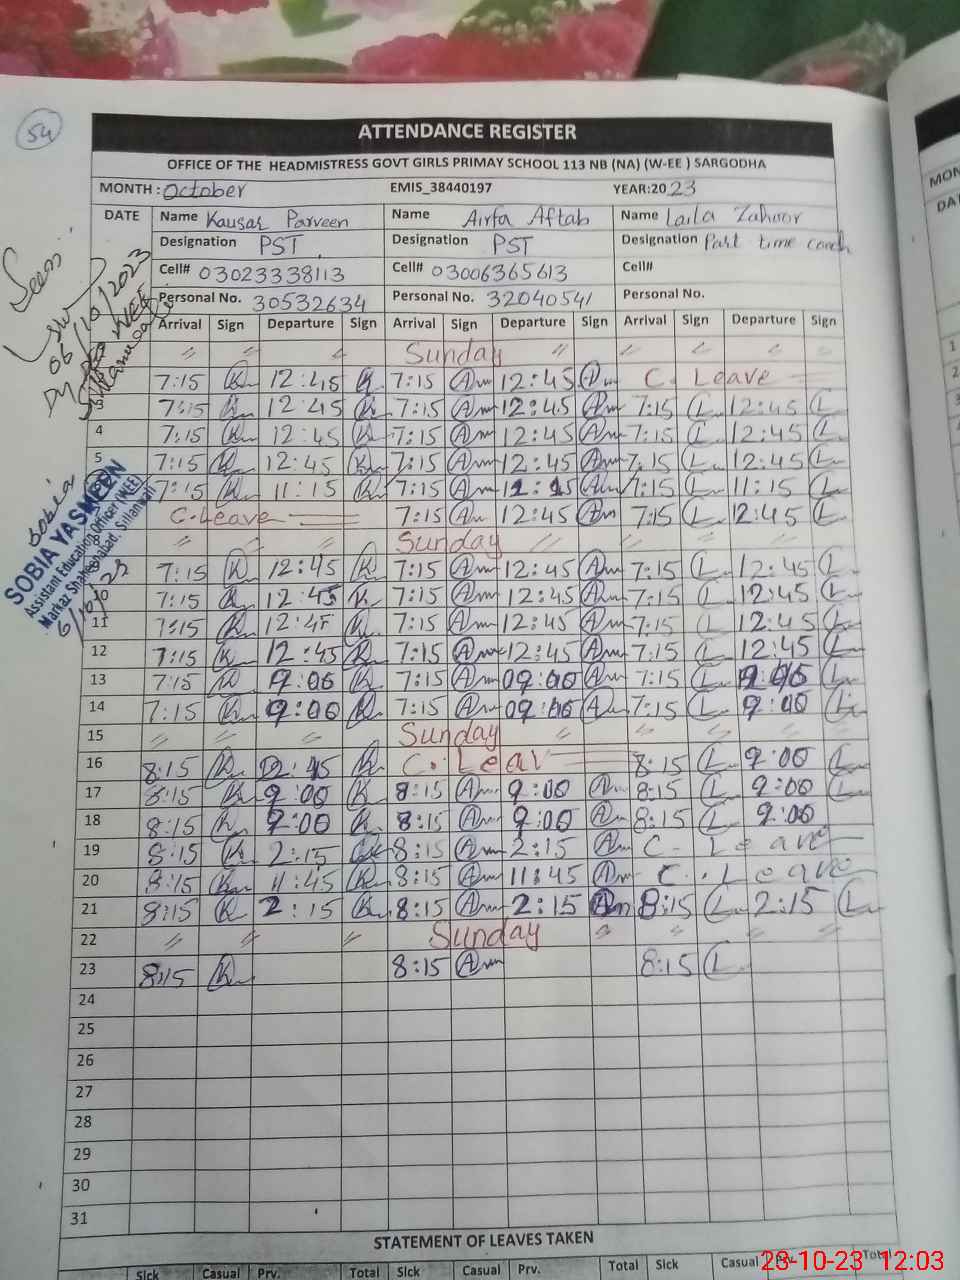 54
ATTENDANCE REGISTER
OFFICE OF THE HEADMISTRESS GOVT GIRLS PRIMAY SCHOOL 113 NB (NA) (W-EE ) SARGODHA
MONTH : October EMIS_38440197 YEAR:20 23
DATE Name Kausar Parveen Name Airfa Aftab Name Laila Zahoor
Designation PST Designation PST Designation Part time coach
Cell# 03023338113 Cell# 03006365613 Cell#
Personal No. 30532634 Personal No. 32040541 Personal No.
Arrival Sign Departure Sign Arrival Sign Departure Sign Arrival Sign Departure Sign
Seen
06/10/2023
SOBIA YASMEEN
Assistant Education Officer (WEE)
Markaz Shaheenabad, Sillanwali
Sunday
7:15 12:45 7:15 12:45 C. Leave
3 7:15 12:45 7:15 12:45 7:15 12:45
4 7:15 12:45 7:15 12:45 7:15 12:45
5 7:15 12:45 7:15 12:45 7:15 12:45
7:15 11:15 7:15 7:15 11:15
C.Leave 7:15 12:45 7:15 12:45
Sunday
7:15 12:45 7:15 12:45 7:15 12:45
10 7:15 12:45 7:15 12:45 7:15 12:45
11 7:15 12:45 7:15 12:45 7:15 12:45
12 7:15 12:45 7:15 12:45 7:15 12:45
13 7:15 9:00 7:15 09:00 7:15 9:00
14 7:15 9:00 7:15 09:00 7:15 9:00
15 Sunday
16 8:15 12:45 C. Leav 8:15 9:00
17 8:15 9:00 8:15 9:00 8:15 9:00
18 8:15 9:00 8:15 9:00 8:15 9:00
19 8:15 2:15 8:15 2:15 C. Leave
20 8:15 11:45 8:15 11:45 C. Leave
21 8:15 2:15 8:15 2:15 8:15 2:15
22 Sunday
23 8:15 8:15 8:15
24
25
26
27
28
29
30
31
STATEMENT OF LEAVES TAKEN
Sick Casual Prv. Total Sick Casual Prv. Total Sick Casual Prv. Total
23-10-23 12:03